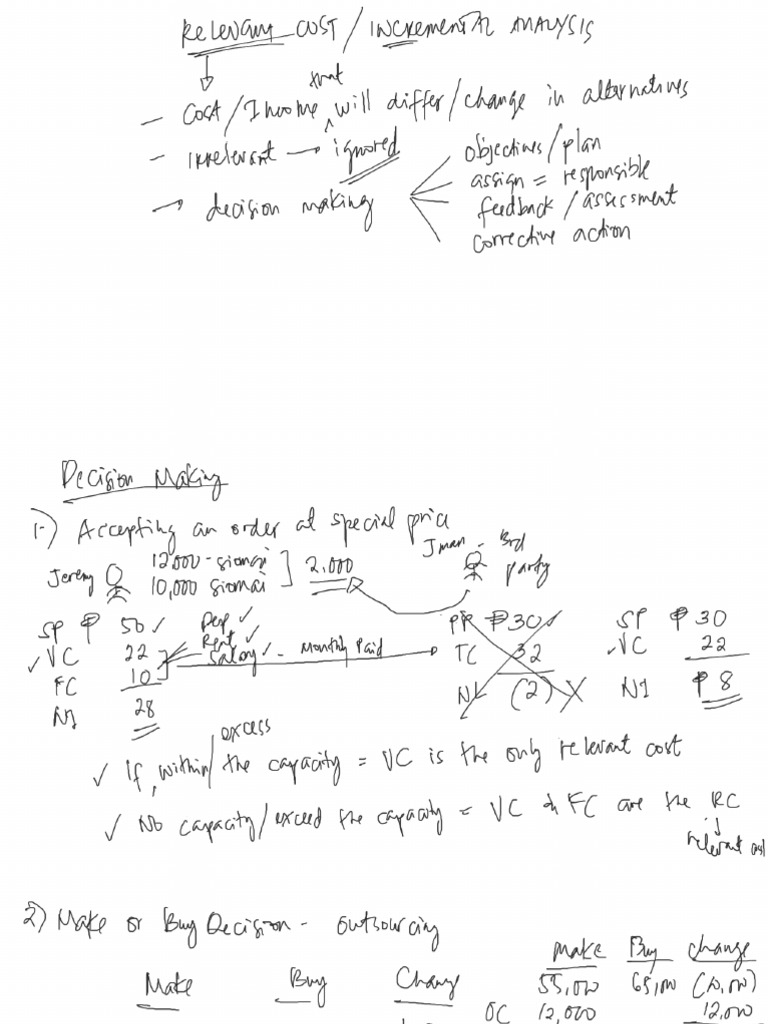 Relevant COST / INCREMENTAL ANALYSIS
that
- Cost / Income will differ / change in alternatives
- irrelevant → ignored
→ decision making
objectives / plan
assign = responsible
feedback / assessment
corrective action
Decision Making
1-) Accepting an order at special price
Jeremy 12,000 - siomai
10,000 siomai
2,000
Jman - 3rd
party
SP ₱ 50 ✓
✓ VC 22
FC 10
NI 28
Dep ✓
Rent ✓
Salary ✓ - Monthly Paid
PR ₱30 ✓
TC 32
NI (2) X
SP ₱ 30
✓ VC 22
NI ₱ 8
excess
✓ If within / the capacity = VC is the only relevant cost
✓ No capacity / exceed the capacity = VC & FC are the RC
relevant cost
2) Make or Buy Decision - outsourcing
Make Buy Change
Make Buy Change
55,000 65,000 (10,000)
OC 12,000 12,000